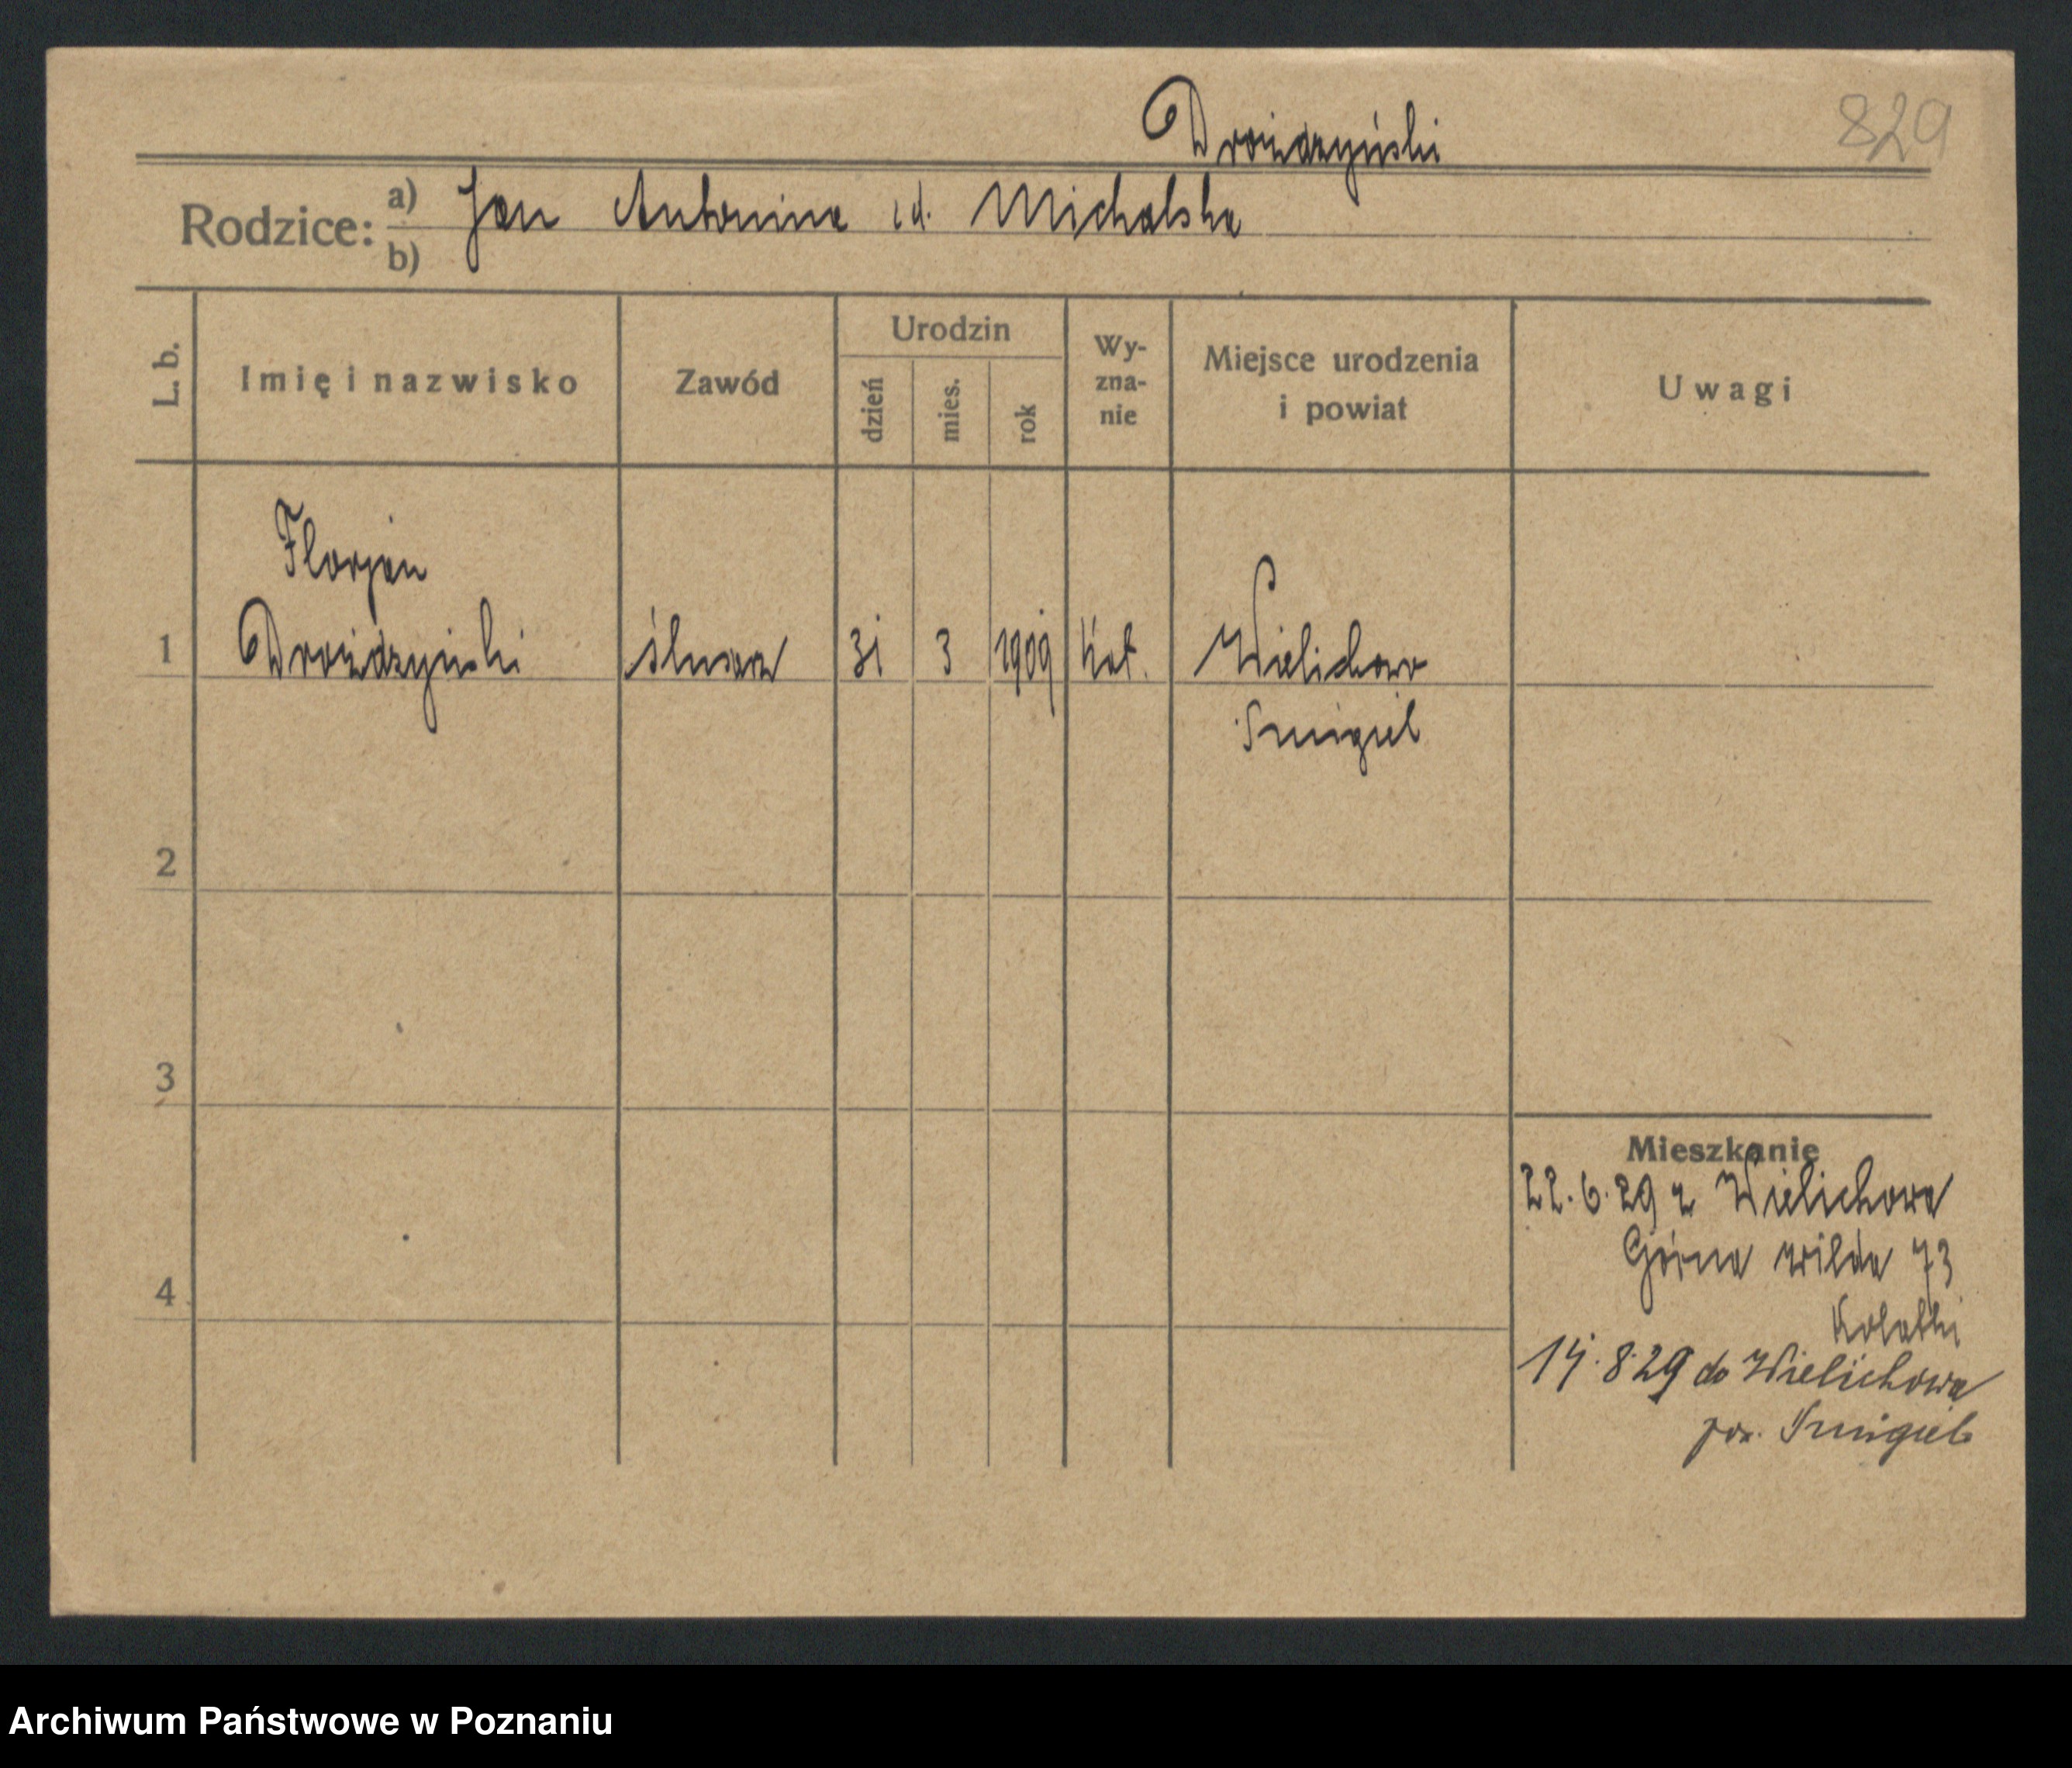 Drożdżyński
829
Rodzice: a) Jan Antonina z d. Michalska
b)
L. b.
Imię i nazwisko
Zawód
Urodzin
dzień
mies.
rok
Wy-
zna-
nie
Miejsce urodzenia
i powiat
Uwagi
Florjan
1 Drożdżyński ślusarz 31 3 1909 kat. Wielichowo
Śmigiel
2
3
4
Mieszkanie
22.6.29 z Wielichowa
Górna Wilda 73
14.8.29 do Wielichowa
pow. Śmigiel
Archiwum Państwowe w Poznaniu